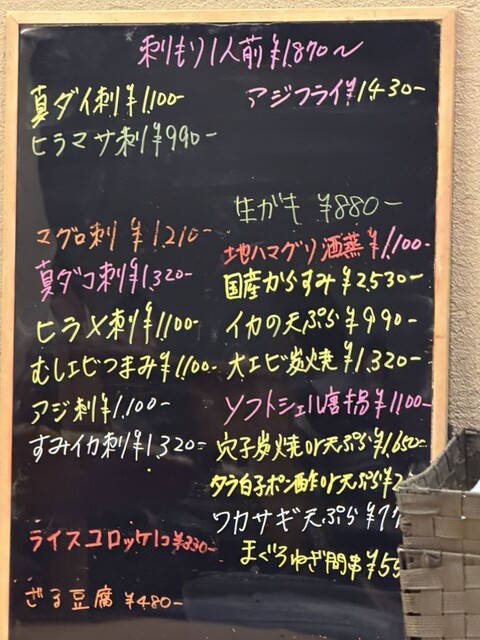 刺もり1人前¥1,870〜
真ダイ刺¥1,100-
ヒラマサ刺¥990-
マグロ刺 ¥1,210-
真ダコ刺¥1,320-
ヒラメ刺¥1,100-
むしエビつまみ¥1,100-
アジ刺¥1,100-
すみイカ刺¥1,320-
ライスコロッケ1コ¥330-
ざる豆腐 ¥480-
アジフライ¥1430-
生ガキ ¥880-
地ハマグリ酒蒸¥1,100-
国産からすみ¥2,530-
イカの天ぷら¥990-
大エビ炭焼¥1,320-
ソフトシェル唐揚¥1,100-
穴子炭焼or天ぷら¥1,650-
タラ白子ポン酢or天ぷら¥2
ワカサギ天ぷら¥77
まぐろねぎ間串¥55